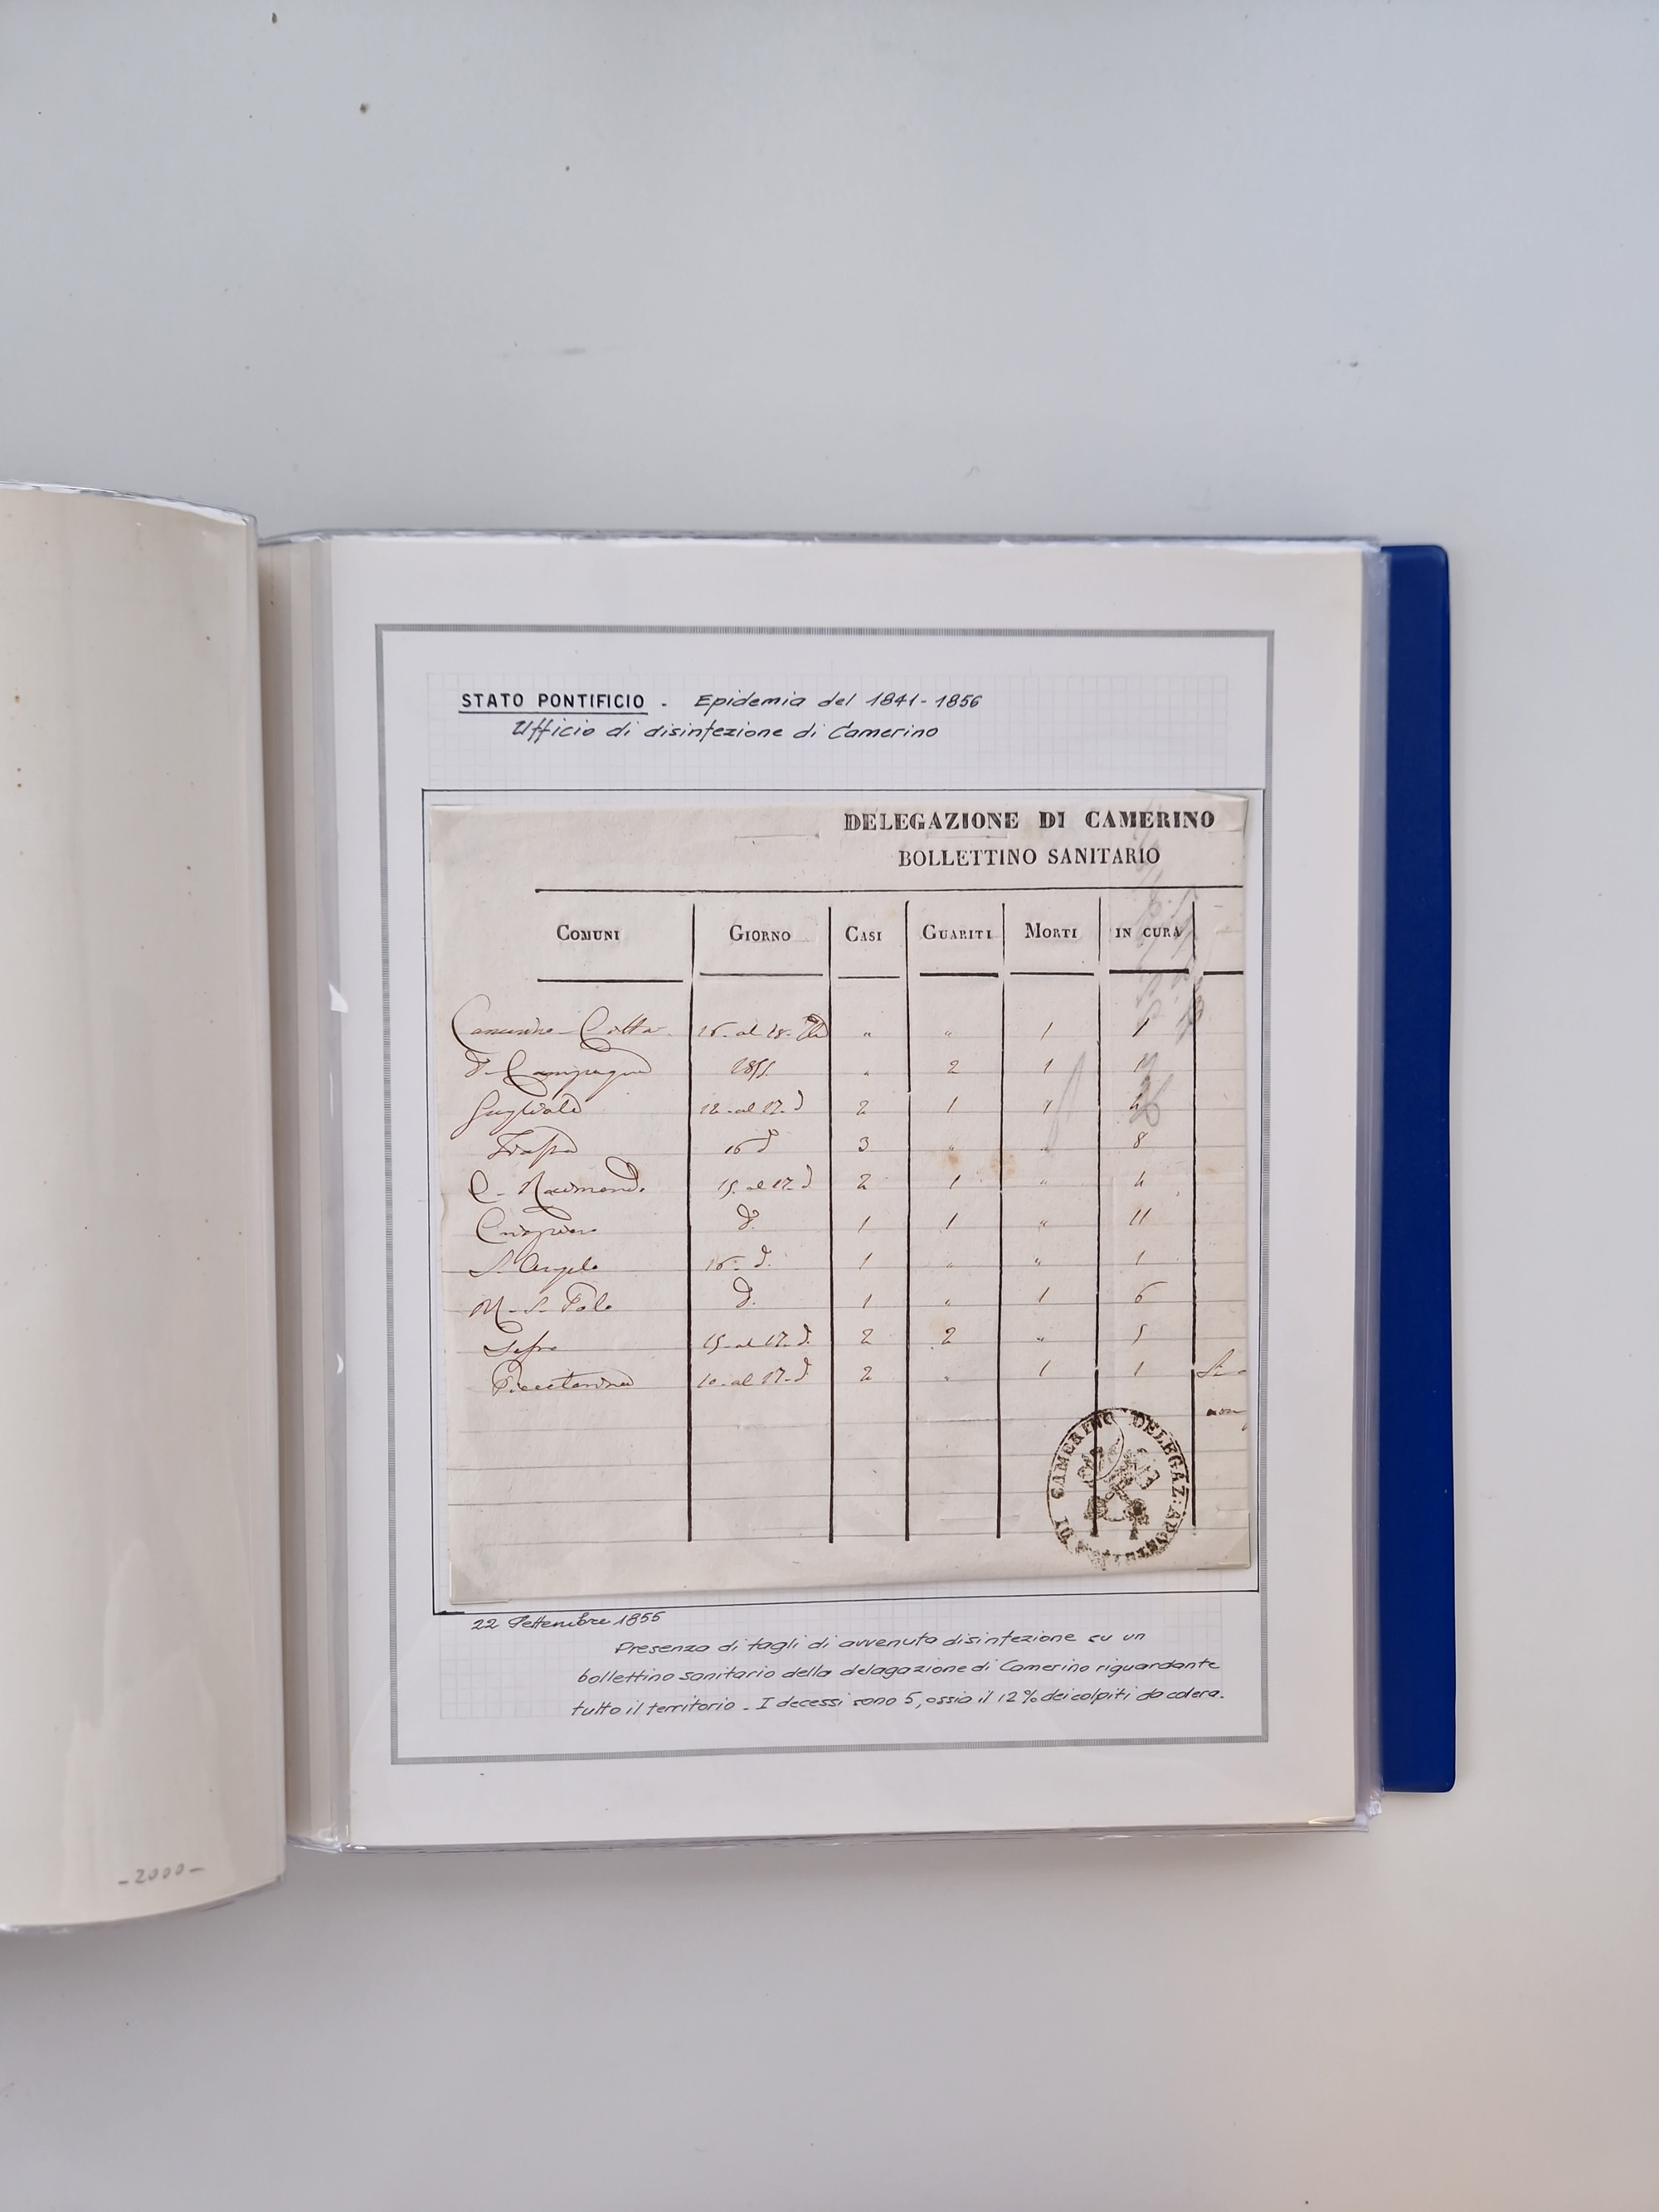 STATO PONTIFICIO - Epidemia del 1841-1856
Ufficio di disinfezione di Camerino
DELEGAZIONE DI CAMERINO
BOLLETTINO SANITARIO
COMUNI GIORNO CASI GUARITI MORTI IN CURA
Camerino Città 16 al 18 " " 1 1
Campagna 1855 " 2 1
Gagliole 12 al 17 d 2 1 " 4
16 d 3 " " 8
C. Raimondo 15 al 17 d 2 1 " 4
d. 1 1 " 11
S. Angelo 16 d. 1 " " 1
M. S. Polo d. 1 " 1 6
Sefro 15 al 17 d. 2 2 " 5
Pievetorina 10 al 17 d 2 " 1 1
non
DI CAMERINO DELEGAZ: APOSTOLICA
22 Settembre 1855
Presenza di tagli di avvenuta disinfezione su un
bollettino sanitario della delagazione di Camerino riguardante
tutto il territorio - I decessi sono 5, ossia il 12% dei colpiti da colera.
-2000-